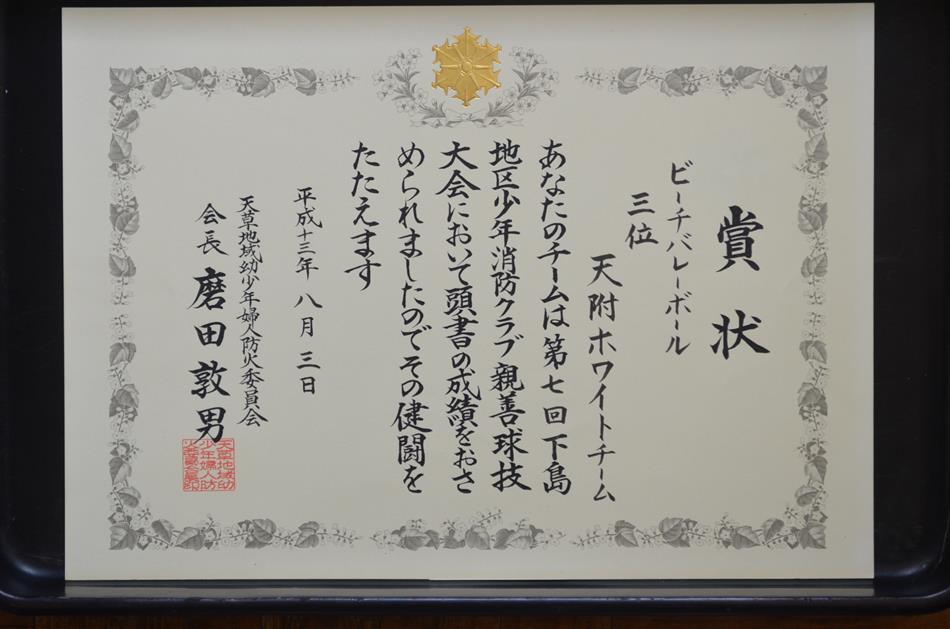 賞状
ビーチバレーボール
三位
天附ホワイトチーム
あなたのチームは第七回下島
地区少年消防クラブ親善球技
大会において頭書の成績をおさ
められましたのでその健闘を
たたえます
平成十三年八月三日
天草地域幼少年婦人防火委員会
会長 磨田敦男
天草地域幼
少年婦人防
火委員会長印